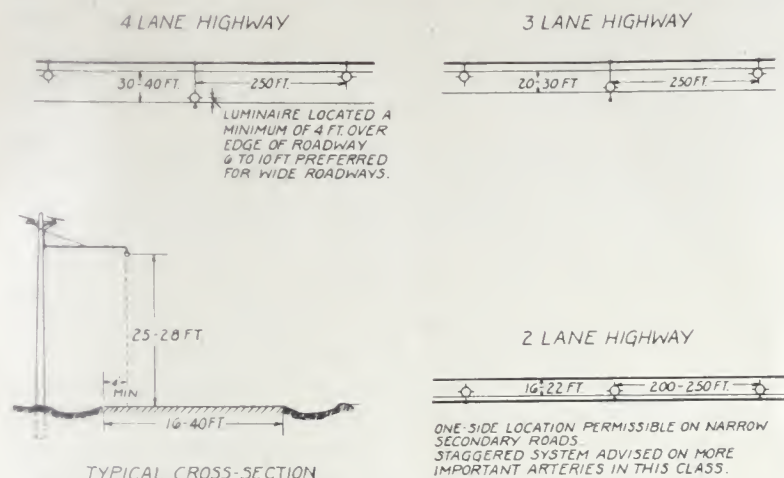 4 LANE HIGHWAY
30-40 FT.
250 FT.
LUMINAIRE LOCATED A
MINIMUM OF 4 FT. OVER
EDGE OF ROADWAY
6 TO 10 FT PREFERRED
FOR WIDE ROADWAYS.
3 LANE HIGHWAY
20-30 FT
250 FT.
25-28 FT.
4'
MIN
16-40 FT.
TYPICAL CROSS-SECTION
2 LANE HIGHWAY
16-22 FT.
200-250 FT.
ONE-SIDE LOCATION PERMISSIBLE ON NARROW
SECONDARY ROADS
STAGGERED SYSTEM ADVISED ON MORE
IMPORTANT ARTERIES IN THIS CLASS.